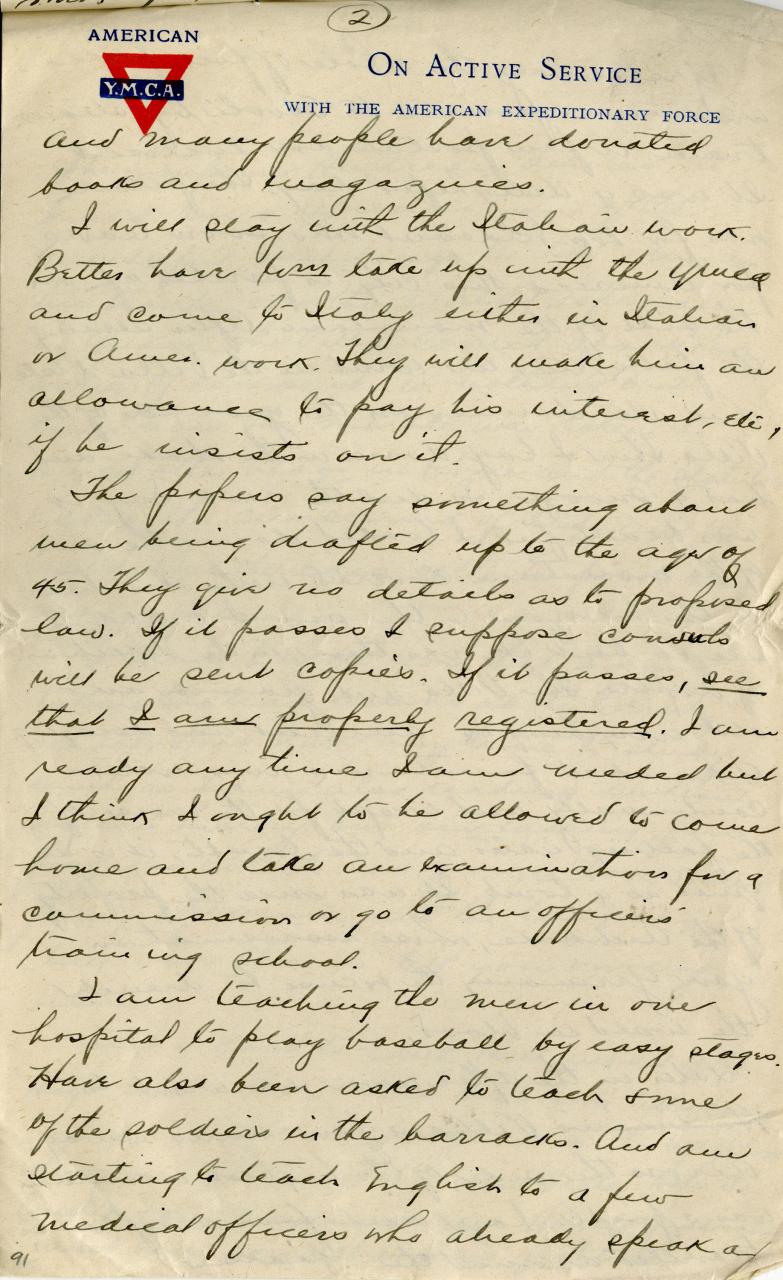 2
AMERICAN
Y.M.C.A.
ON ACTIVE SERVICE
WITH THE AMERICAN EXPEDITIONARY FORCE
and many people have donated
books and magazines.
I will stay with the Italian work.
Better have Tom take up with the YMCA
and come to Italy either in Italian
or Amer. work. They will make him an
allowance to pay his interest, etc,
if he insists on it.
The papers say something about
men being drafted up to the age of
45. They give no details as to proposed
law. If it passes I suppose consuls
will be sent copies. If it passes, see
that I am properly registered. I am
ready any time I am needed but
I think I ought to be allowed to come
home and take an examination for a
commission or go to an officers'
training school.
I am teaching the men in one
hospital to play baseball by easy stages.
Have also been asked to teach some
of the soldiers in the barracks. And am
starting to teach English to a few
medical officers who already speak a
91